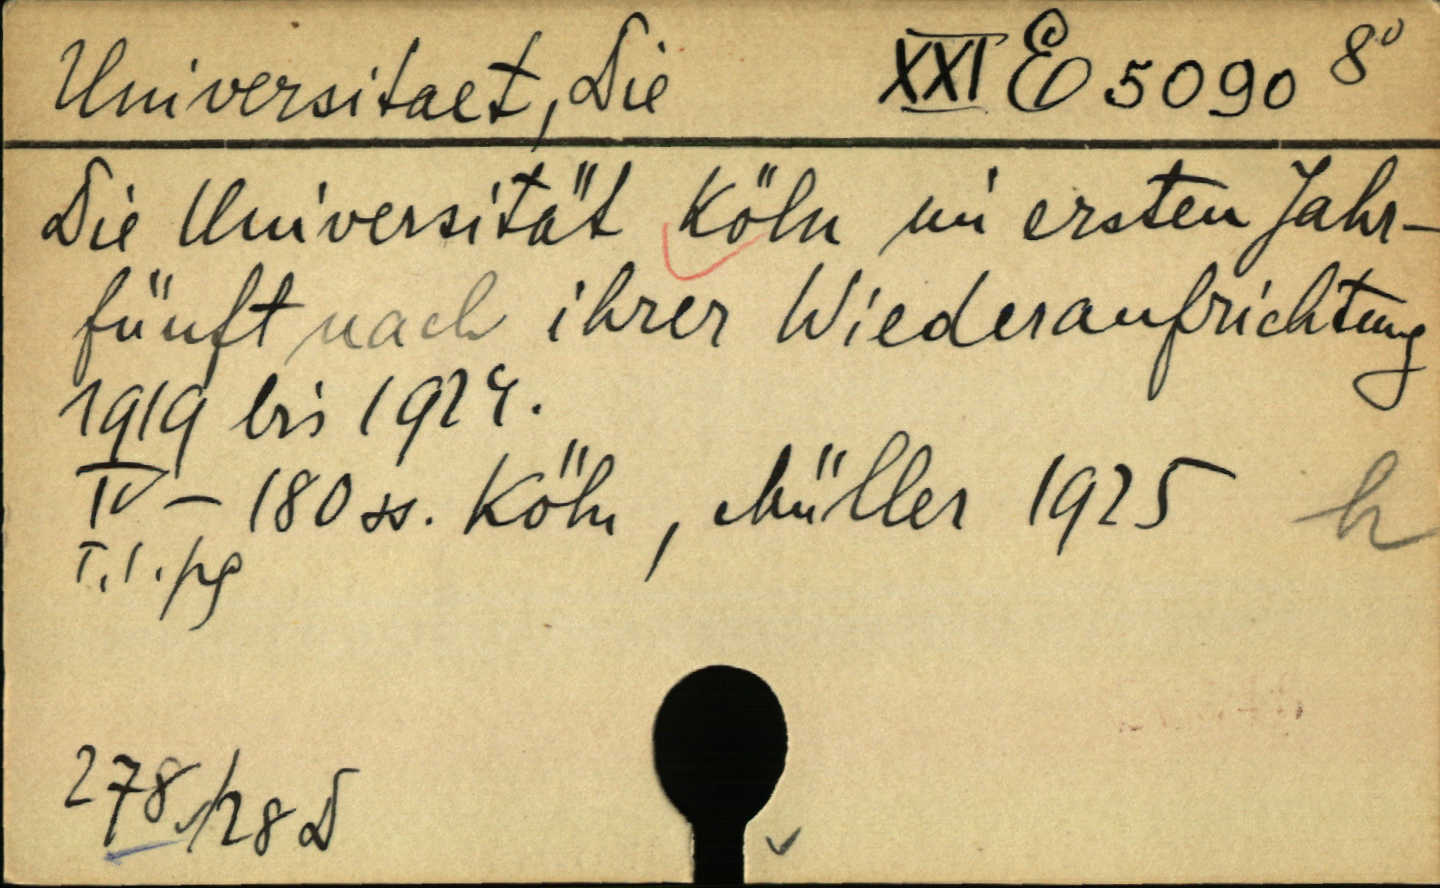 Universitaet, Die XXI E 5090 8°
Die Universität Köln im ersten Jahr-
fünft nach ihrer Wiederaufrichtung
1919 bis 1924.
IV – 180 ss. Köln, Müller 1925 h
T. 1. pg
278/28 D